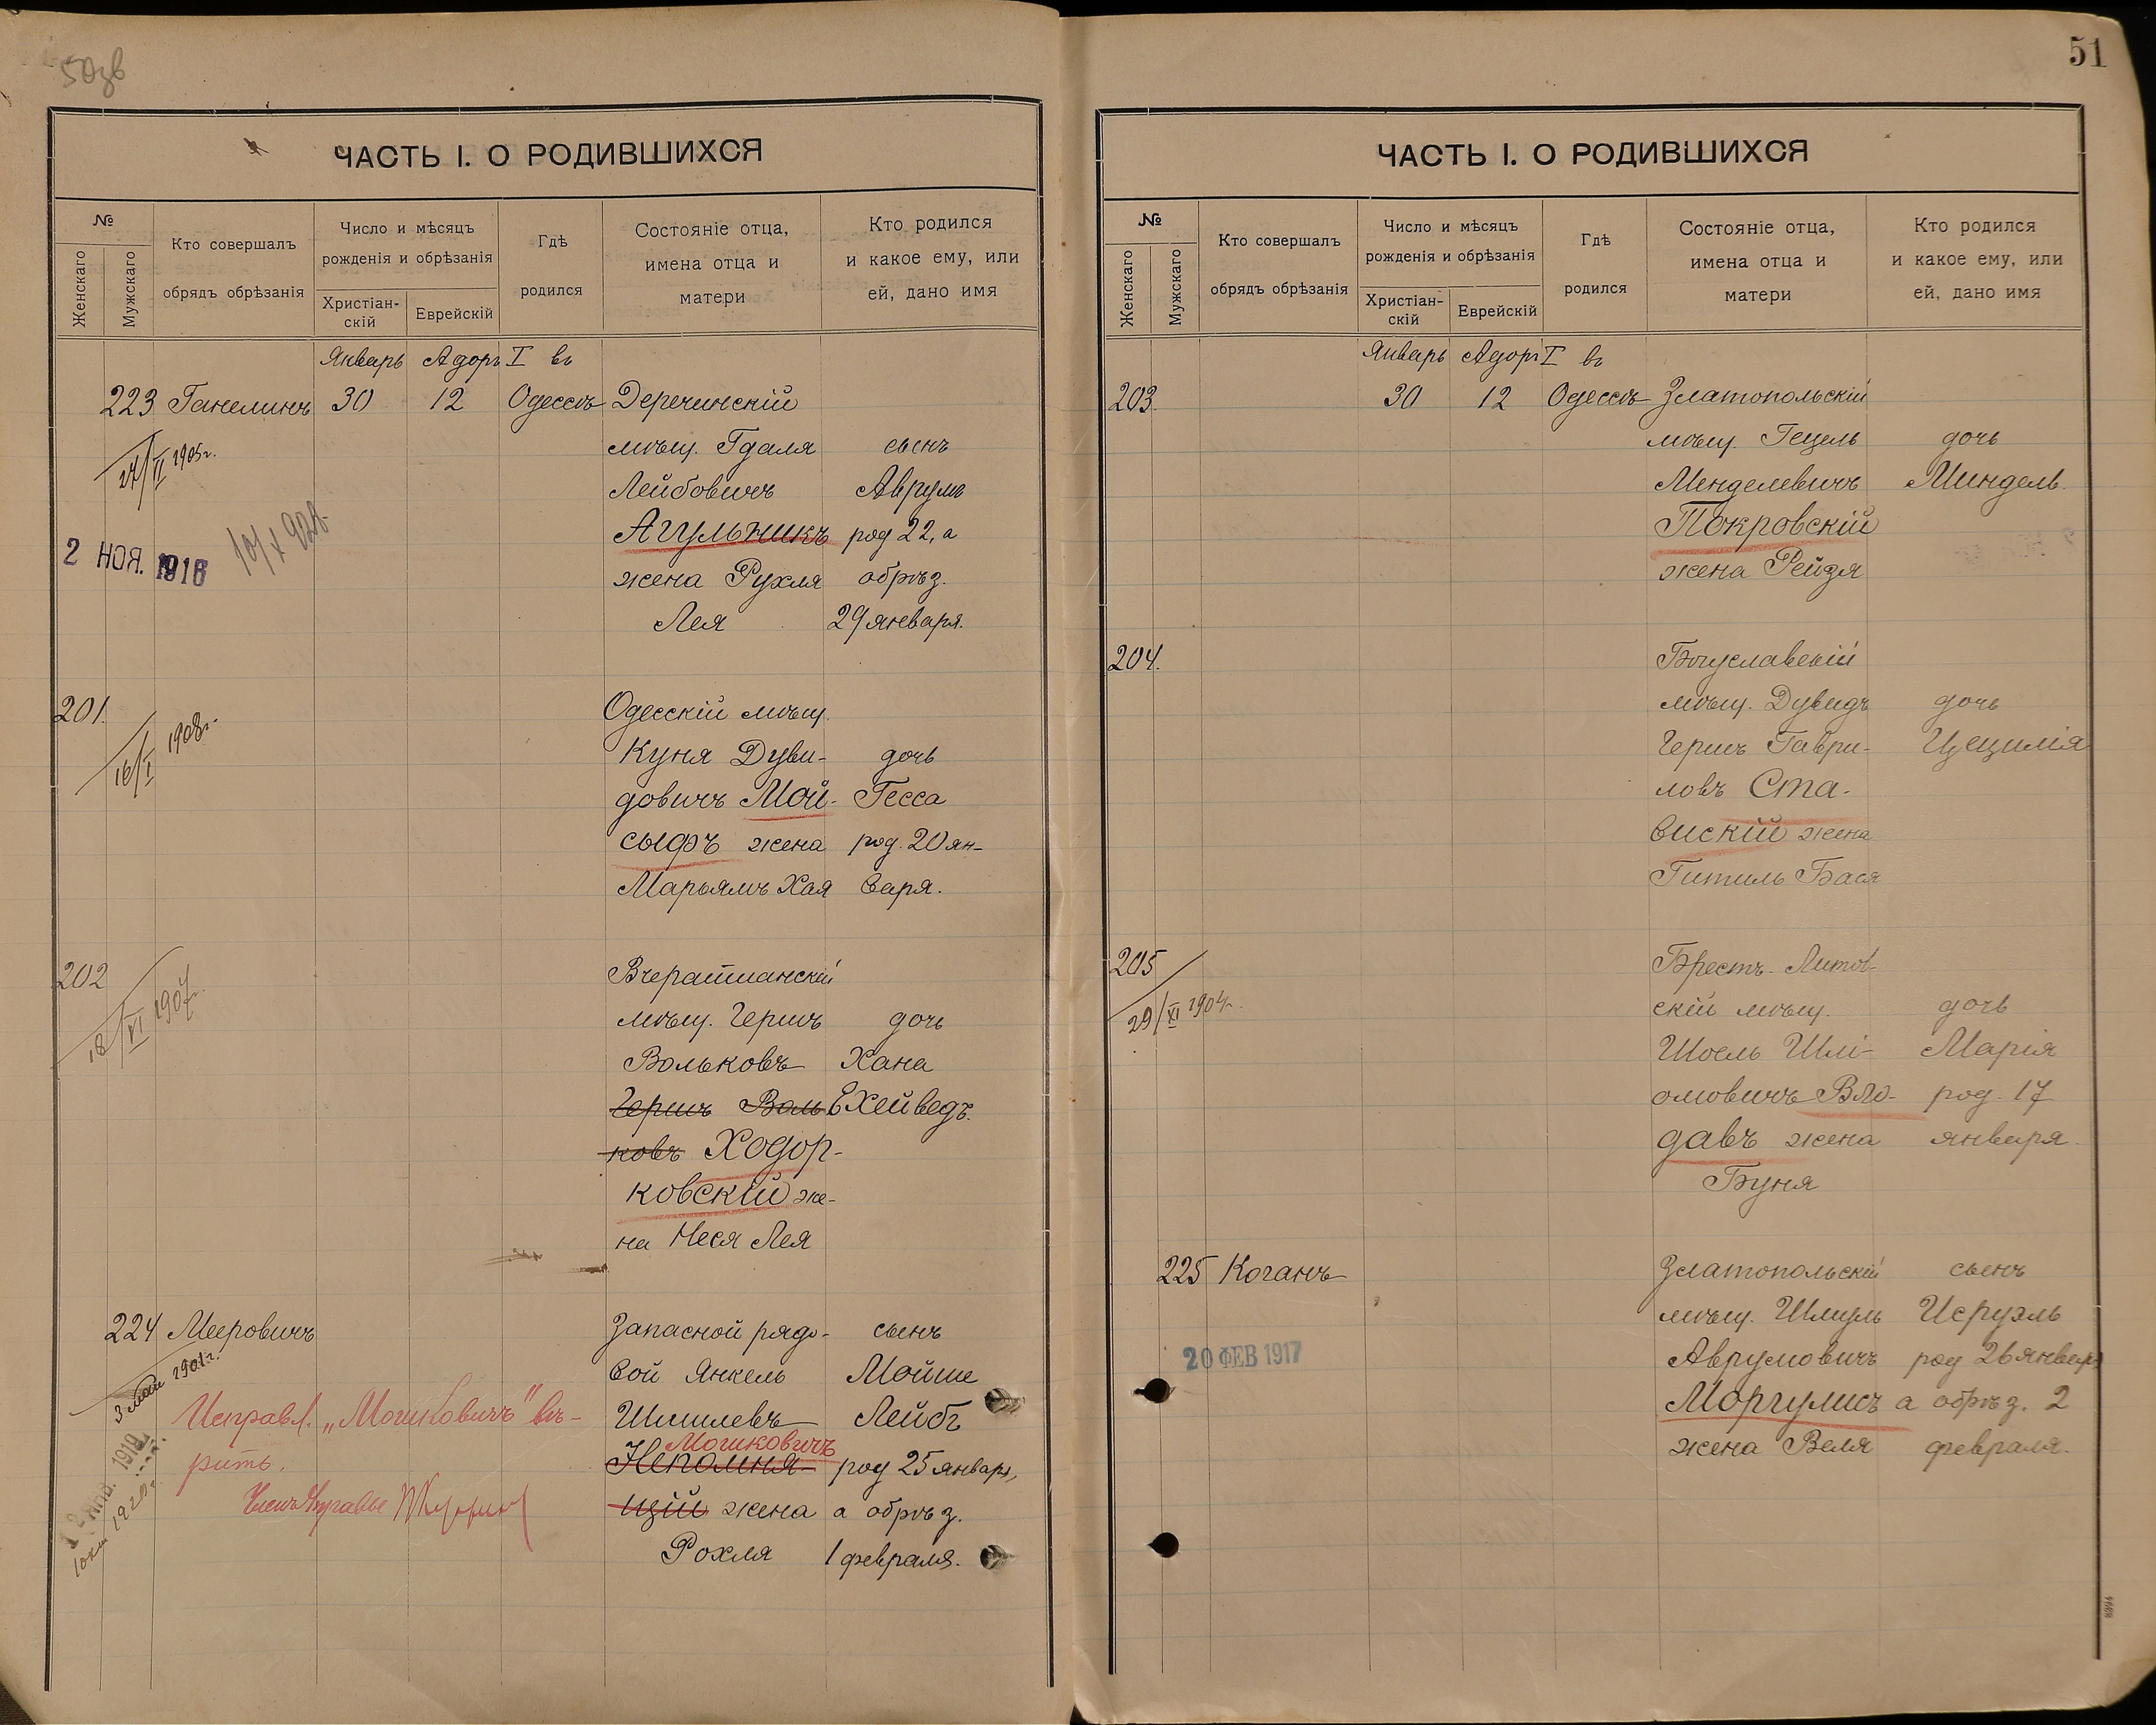 50зв
ЧАСТЬ I. О РОДИВШИХСЯ
№
Женскаго
Мужскаго
Кто совершалъ
обрядъ обрѣзанія
Число и мѣсяцъ
рожденія и обрѣзанія
Христіан-
скій
Еврейскій
Гдѣ
родился
Состояніе отца,
имена отца и
матери
Кто родился
и какое ему, или
ей, дано имя
Январь Адоръ I въ
223 Ганелинъ 30 12 Одессѣ Деречинскій
мѣщ. Гдаля сынъ
27/II 1905 г.
Лейбовичъ Аврумъ
Агульникъ род 22, а
2 НОЯ. 1916
жена Рухля обрѣз.
Лея 29 января.
201. Одесскій мѣщ.
16/I 1908 г.
Куня Дуви- дочь
довичъ Мой- Гесса
сыфъ жена род. 20 ян-
Марьямъ Хая варя.
202 Вчерашанскій
18/VI 1907 г.
мѣщ. Гершъ дочь
Вольковъ Хана
Гершъ Воль Ехейведъ.
ковъ Ходор-
ковскій же-
на Неся Лея
224 Мееровичъ Запасной рядо- сынъ
3 мая 1901 г.
вой Янкель Мойше
Исправл. „Мошковичъ" вѣ- Шмилевъ Лейбъ
Мошковичъ
рить. Непомня- род 25 января,
Членъ Управы
щій жена а обрѣз.
Рохля 1 февраля.
51
ЧАСТЬ I. О РОДИВШИХСЯ
№
Женскаго
Мужскаго
Кто совершалъ
обрядъ обрѣзанія
Число и мѣсяцъ
рожденія и обрѣзанія
Христіан-
скій
Еврейскій
Гдѣ
родился
Состояніе отца,
имена отца и
матери
Кто родился
и какое ему, или
ей, дано имя
Январь Адоръ I въ
203. 30 12 Одессѣ Златопольскій
мѣщ. Гецель дочь
Менделевичъ Миндель.
Покровскій
жена Рейзя
204. Богуславскій
мѣщ. Дувидъ дочь
Гершъ Гаври- Цецилія
ловъ Ста-
виский жена
Гитиль Бася
205 Брестъ-Литов-
29/XI 1904 г.
скій мѣщ. дочь
Шоель Шлі- Марія
омовичъ Вло- род. 17
давъ жена января.
Буня
225 Коганъ Златопольскій сынъ
мѣщ. Шмуль Исруэль
20 ФЕВ 1917
Аврумовичъ род 26 января
Моргулисъ а обрѣз. 2
жена Веля февраля.